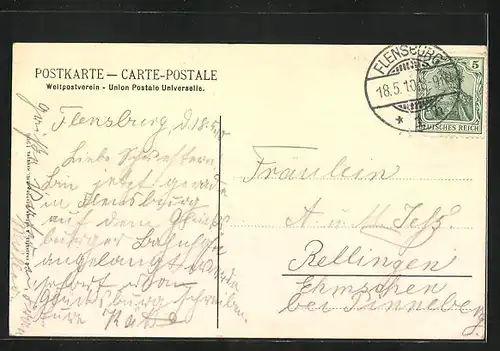 POSTKARTE — CARTE-POSTALE
Weltpostverein - Union Postale Universelle.
FLENSBURG
18.5.10
5
DEUTSCHES REICH
Flensburg d. 18.
Liebe Schwestern
bin jetzt gerade
in Flensburg
auf dem
burger Bahnhof
angelangt werde
sofort von
burg schreiben.
Eure Käte
Fräulein
A. u M. Jess
Rellingen
Ehmschen
bei Pinneberg